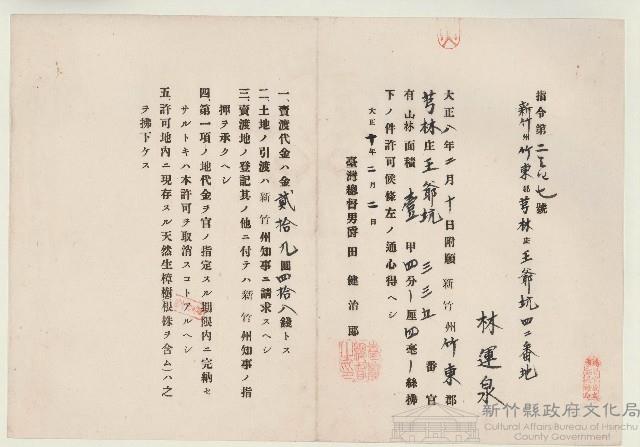 指令第二五七七號
新竹州竹東郡芎林庄王爺坑四二番地
林運泉
大正八年二月十日附願新竹州竹東郡
芎林庄王爺坑三三五番官
有山林面積壹甲四分丨厘四毫丨絲拂
下ノ件許可候條左ノ通心得ヘシ
大正十年二月二日
臺灣總督男爵田健治郎
一、賣渡代金ハ金貳拾九圓四拾八錢トス
二、土地ノ引渡ハ新竹州知事ニ請求スヘシ
三、賣渡地ノ登記其ノ他ニ付テハ新竹州知事ノ指
揮ヲ承クヘシ
四、第一項ノ地代金ヲ官ノ指定スル期限內ニ完納セ
サルトキハ本許可ヲ取消スコトアルヘシ
五、許可地內ニ現存スル天然生樟樹(根株ヲ含ム)ハ之
ヲ拂下ケス
新竹縣政府文化局
Cultural Affairs Bureau of Hsinchu
County Government